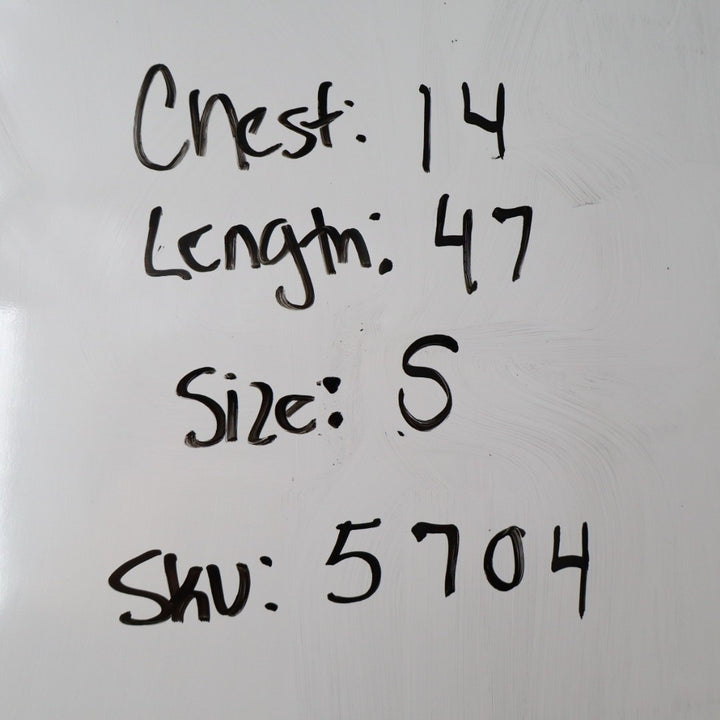 Chest: 14
Length: 47
Size: S
SKU: 5704